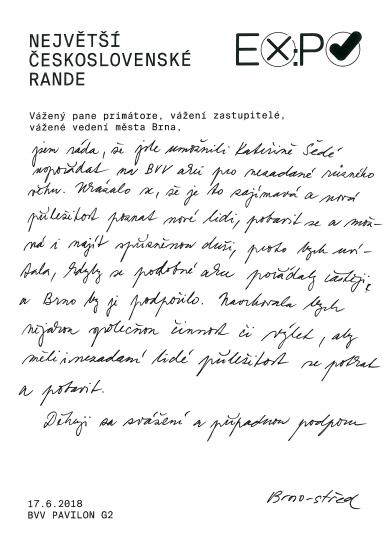 NEJVĚTŠÍ
ČESKOSLOVENSKÉ
RANDE
EXPO
Vážený pane primátore, vážení zastupitelé,
vážené vedení města Brna,
jsem ráda, že jste umožnili Kateřině Šedé
uspořádat na BVV akci pro nezadané různého
věku. Ukázalo se, že je to zajímavá a nová
příležitost poznat nové lidi, pobavit se a mož-
ná i najít spřízněnou duši, proto bych uví-
tala, kdyby se podobné akce pořádaly častěji
a Brno by je podpořilo. Navrhovala bych
nějakou společnou činnost či výlet, aby
měli i nezadaní lidé příležitost se potkat
a pobavit.
Děkuji za zvážení a případnou podporu
Brno-střed
17.6.2018
BVV PAVILON G2